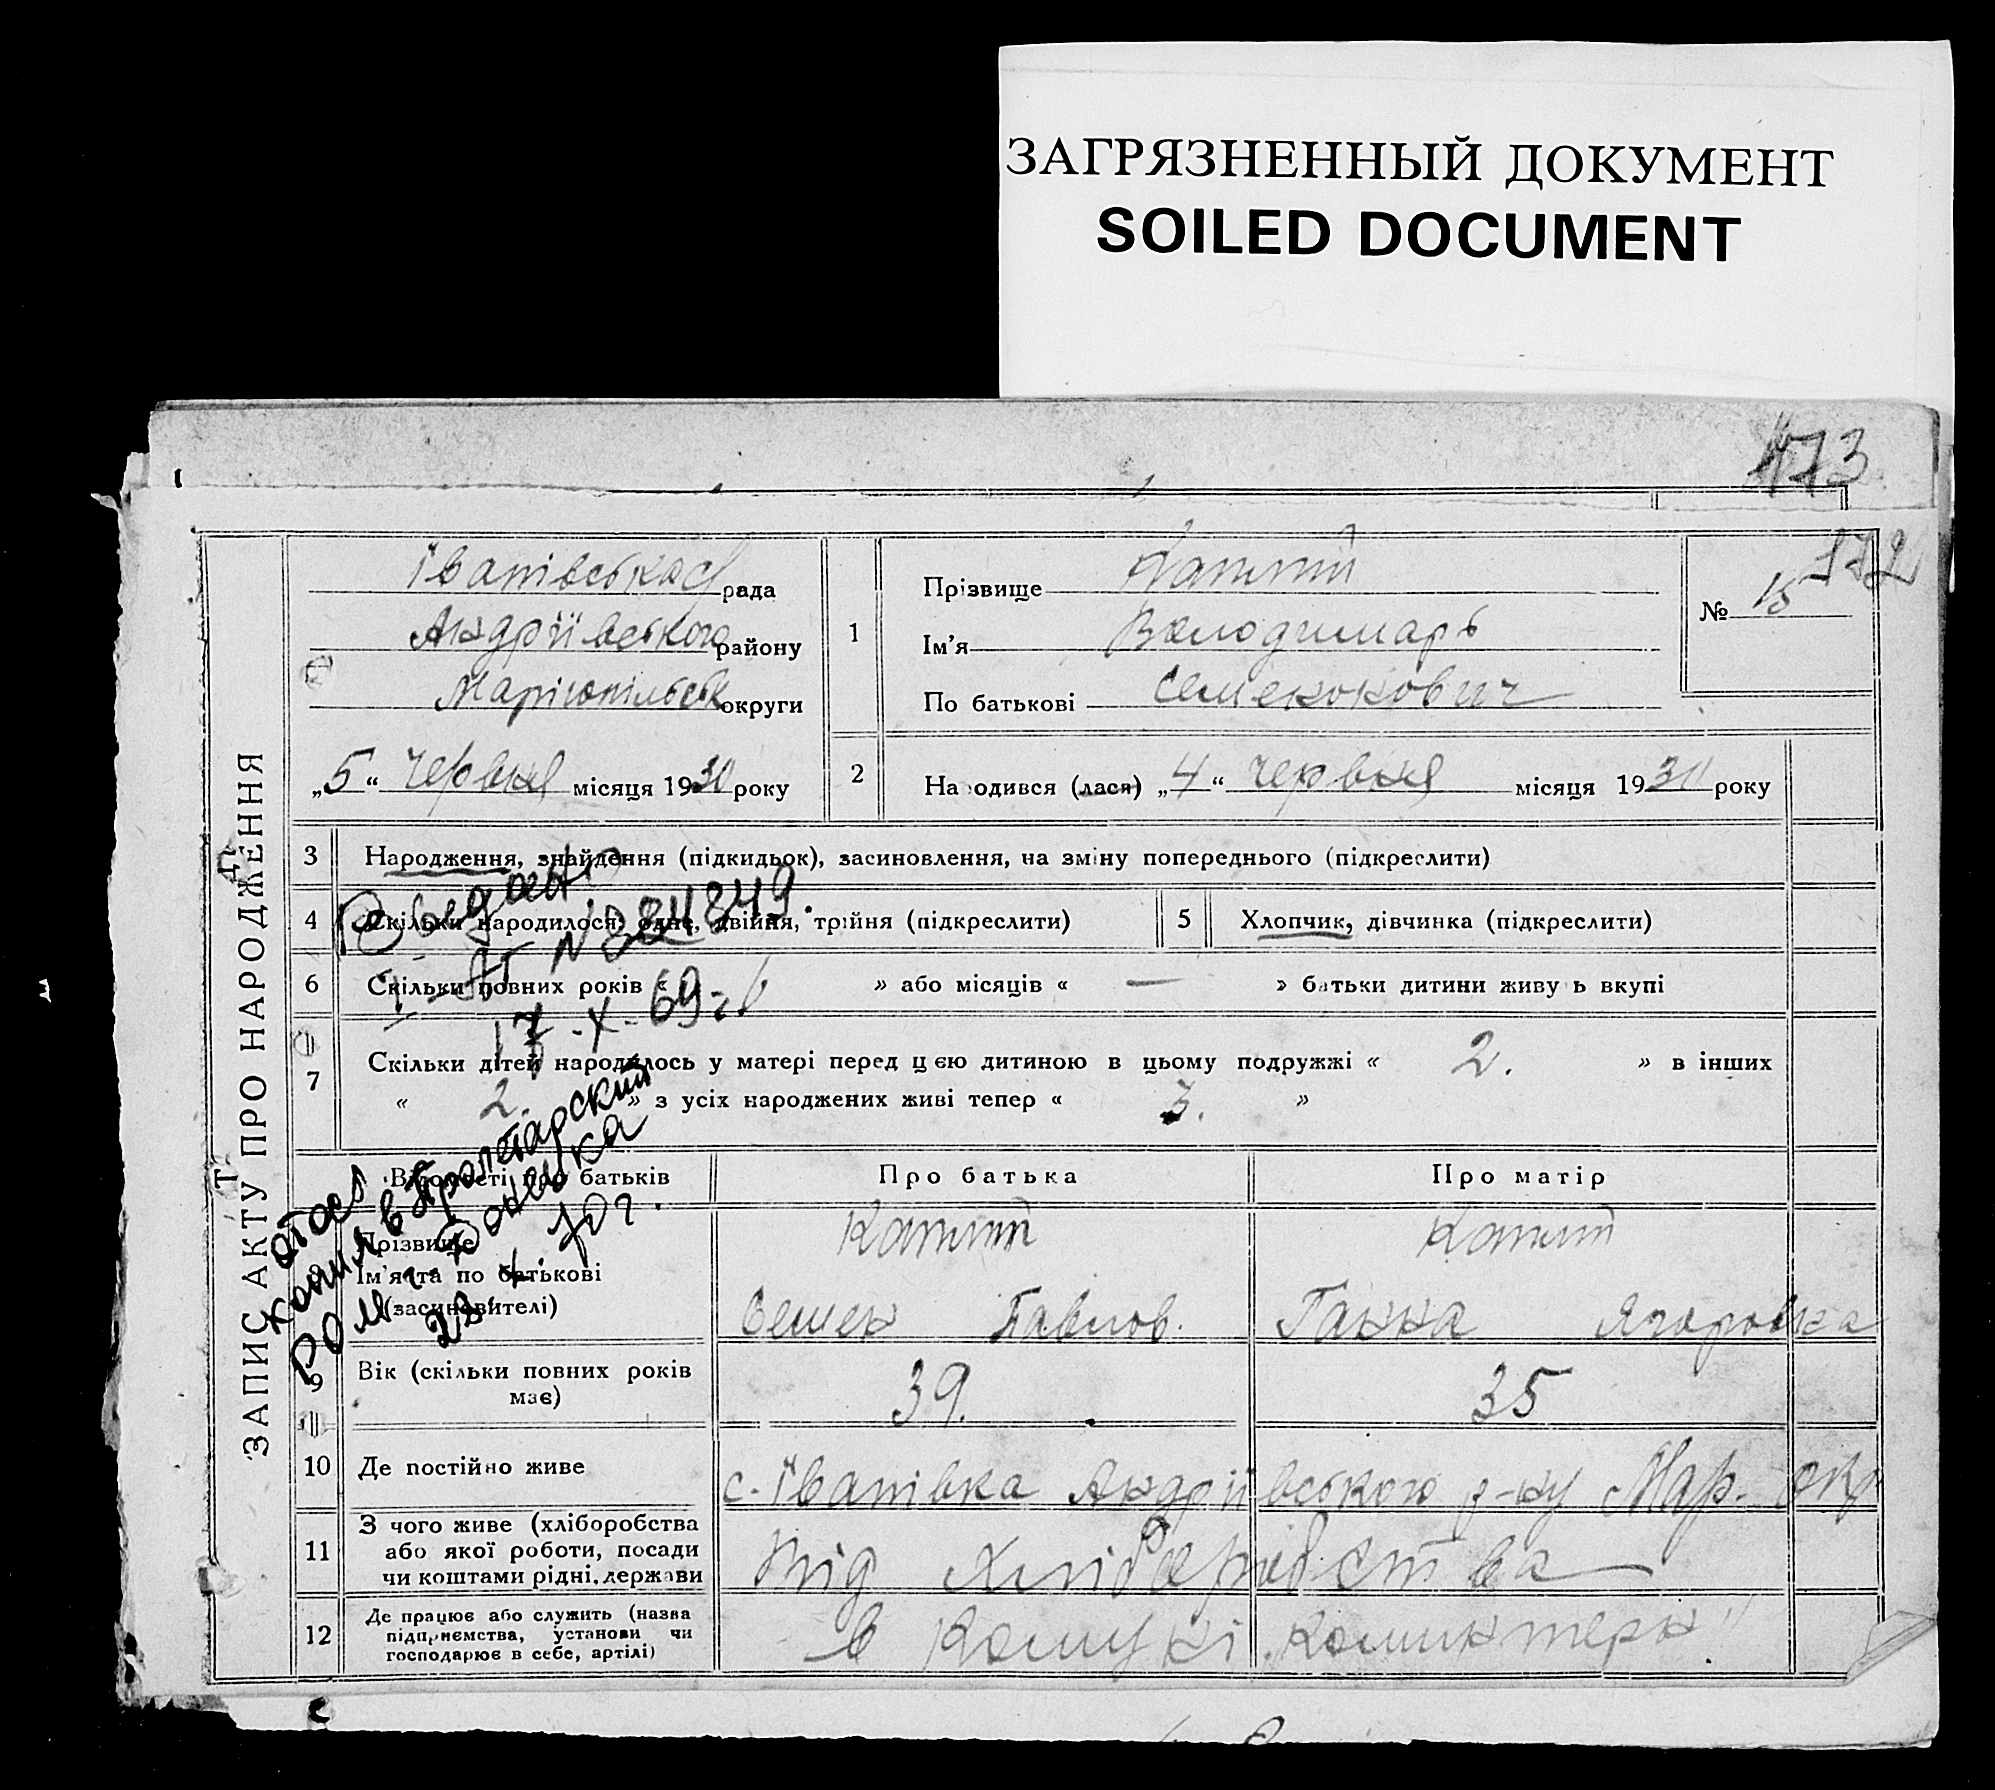 ЗАГРЯЗНЕННЫЙ ДОКУМЕНТ
SOILED DOCUMENT
173
172
ЗАПИС АКТУ ПРО НАРОДЖЕННЯ
Іванівська с/рада
Андріївського району
Маріюпільськ округи
„5“ Червня місяця 1930 року
1
Прізвище
Ім'я Володимарь
По батькові Семенович
№ 15
2
Народився (лася) „4“ червня місяця 1930 року
3 Народження, знайдення (підкидьок), засиновлення, на зміну попереднього (підкреслити)
4 Скільки народилося: одне, двійня, трійня (підкреслити)
5 Хлопчик, дівчинка (підкреслити)
6 Скільки повних років « » або місяців « — » батьки дитини живуть вкупі
7 Скільки дітей народилось у матері перед цією дитиною в цьому подружжі « 2. » в інших
« 2. » з усіх народжених живі тепер « 3. »
№ 884849.
17-X-69г.
в Пролетарский
г. Донецка
70г.
Відомості про батьків
Про батька
Про матір
Прізвище
Ім'я та по батькові
(засиновителі)
Семен Павлов.
Ганна Ягоровна
9 Вік (скільки повних років
має)
39.
35
10 Де постійно живе
с. Іванівка Андріївського р-ну Мар. окр
11 З чого живе (хліборобства
або якої роботи, посади
чи коштами рідні, держави
від Хліборобства
12 Де працює або служить (назва
підприємства, установи чи
господарює в себе, артілі)
в Комуні „Коминтерн"